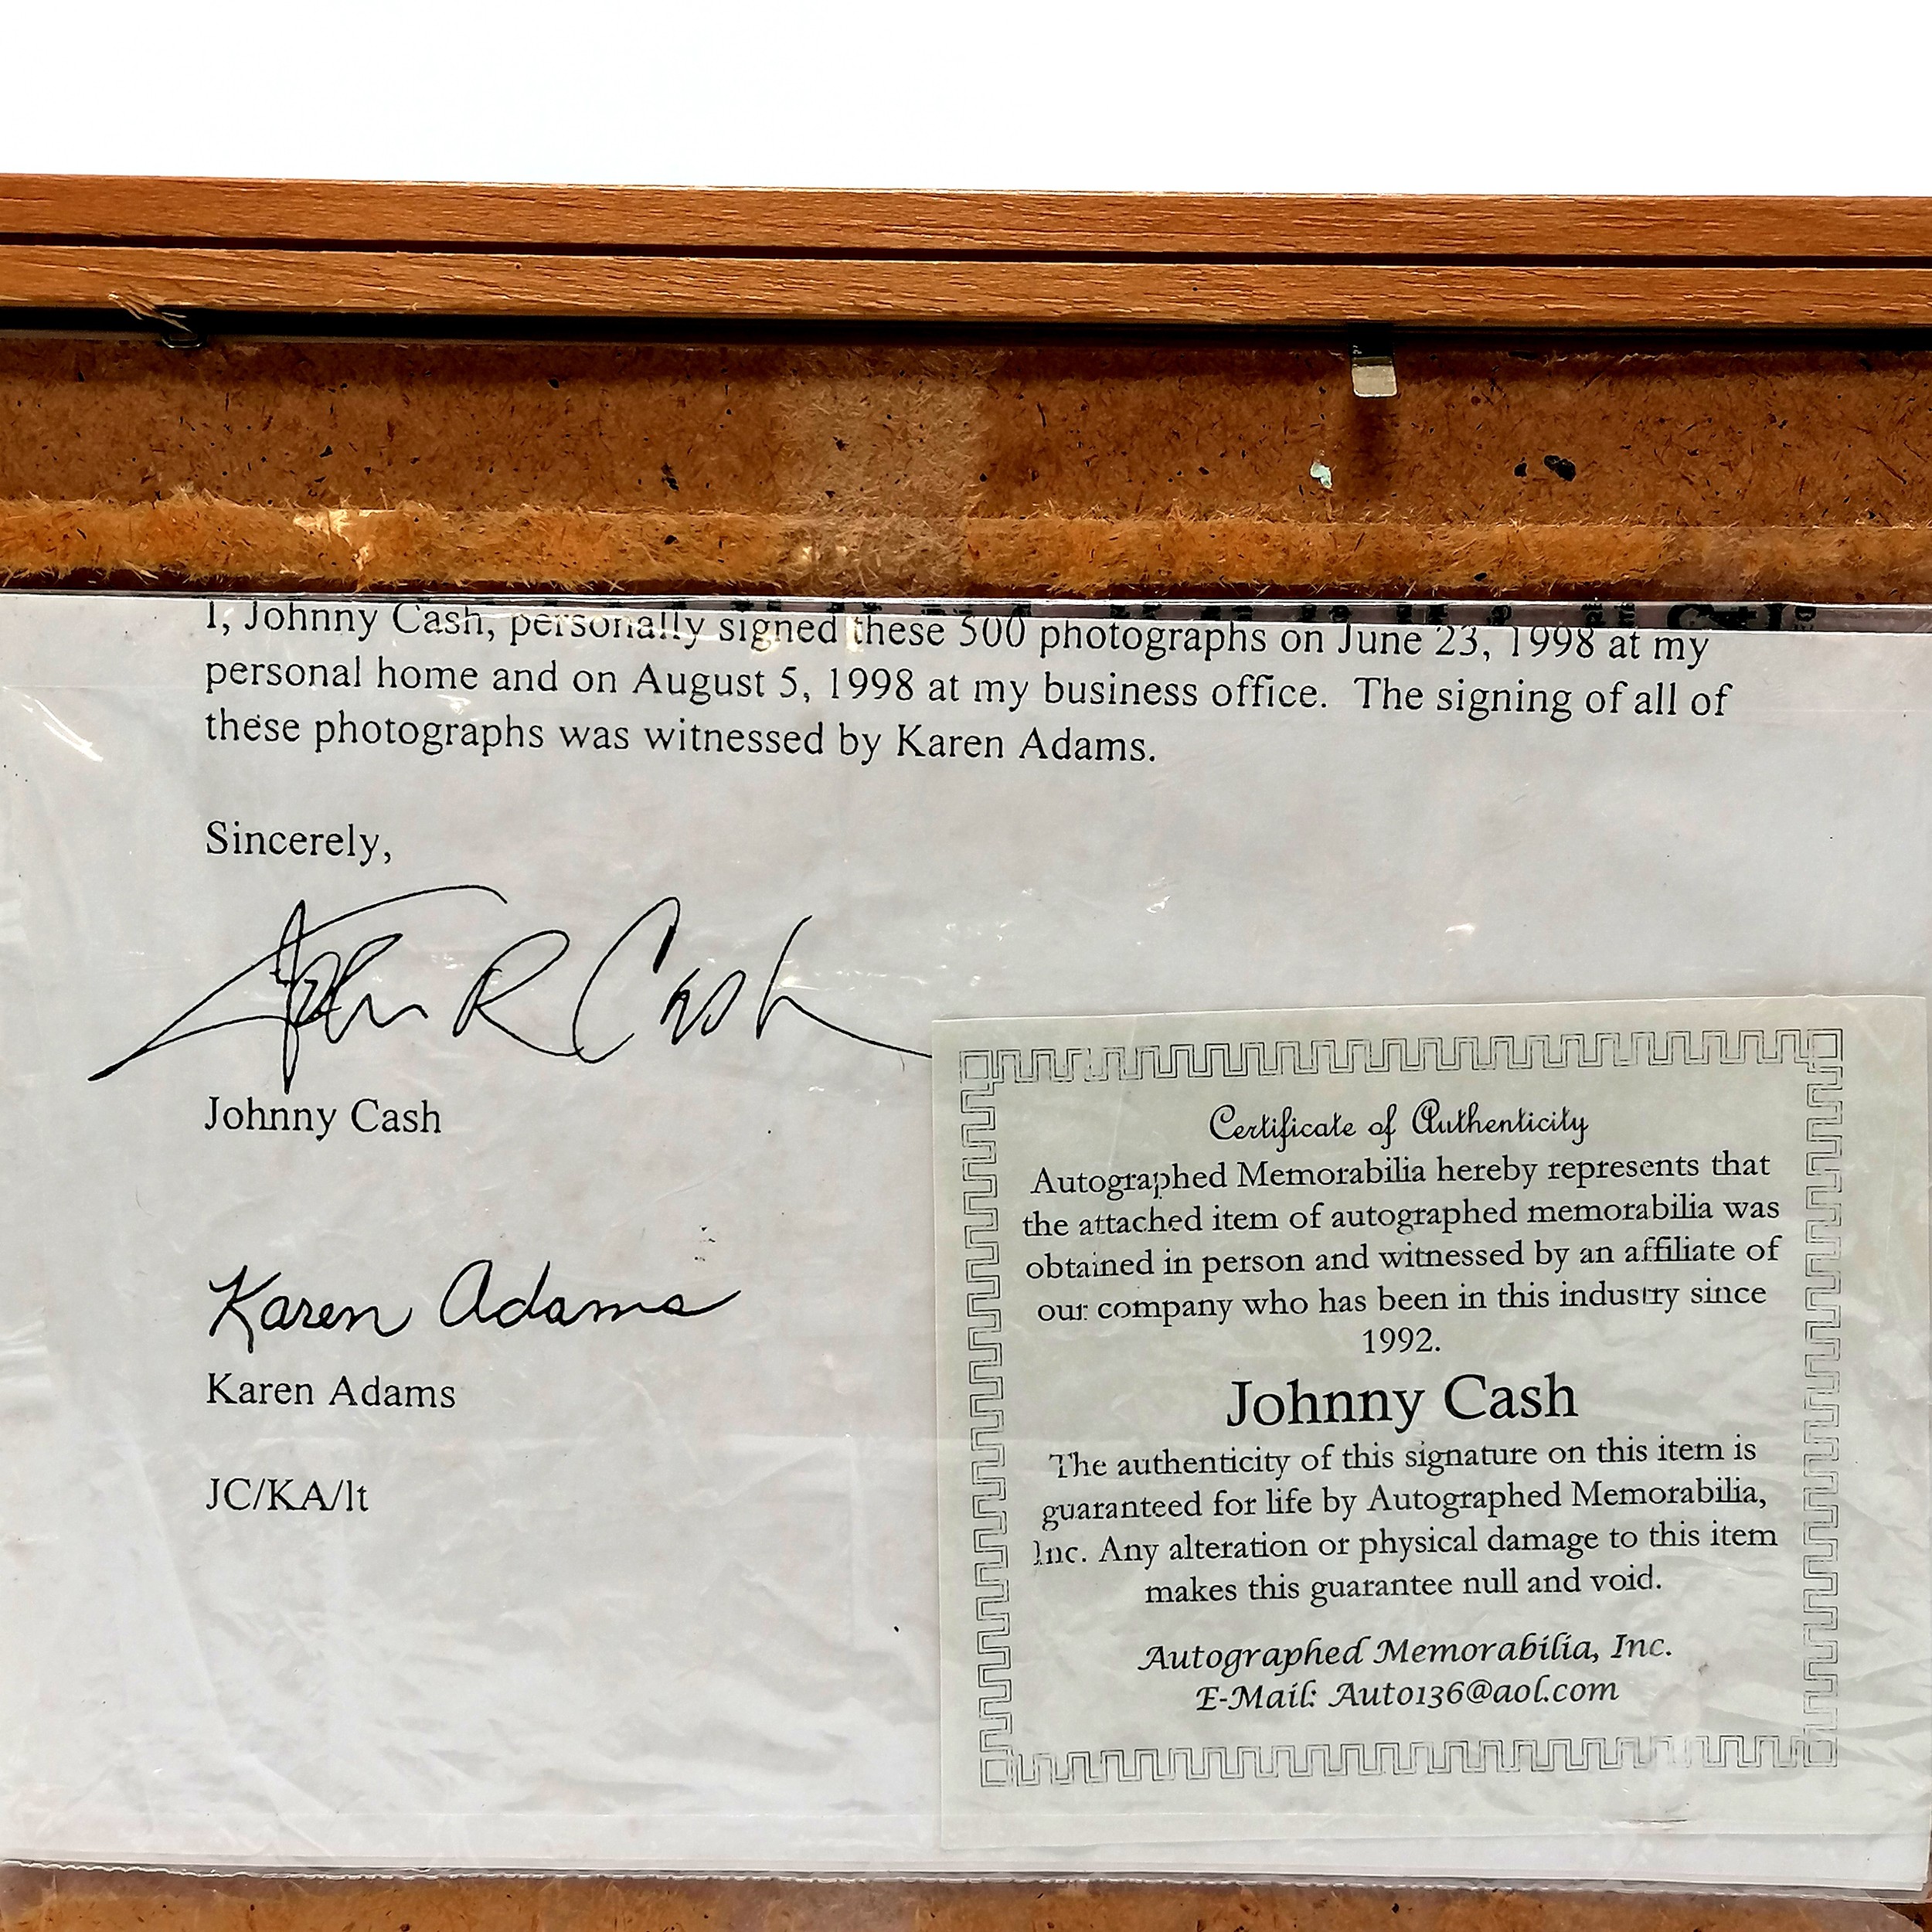 I, Johnny Cash, personally signed these 500 photographs on June 23, 1998 at my
personal home and on August 5, 1998 at my business office. The signing of all of
these photographs was witnessed by Karen Adams.
Sincerely,
John R Cash
Johnny Cash
Karen Adams
Karen Adams
JC/KA/lt
Certificate of Authenticity
Autographed Memorabilia hereby represents that
the attached item of autographed memorabilia was
obtained in person and witnessed by an affiliate of
our company who has been in this industry since
1992.
Johnny Cash
The authenticity of this signature on this item is
guaranteed for life by Autographed Memorabilia,
Inc. Any alteration or physical damage to this item
makes this guarantee null and void.
Autographed Memorabilia, Inc.
E-Mail: Auto136@aol.com